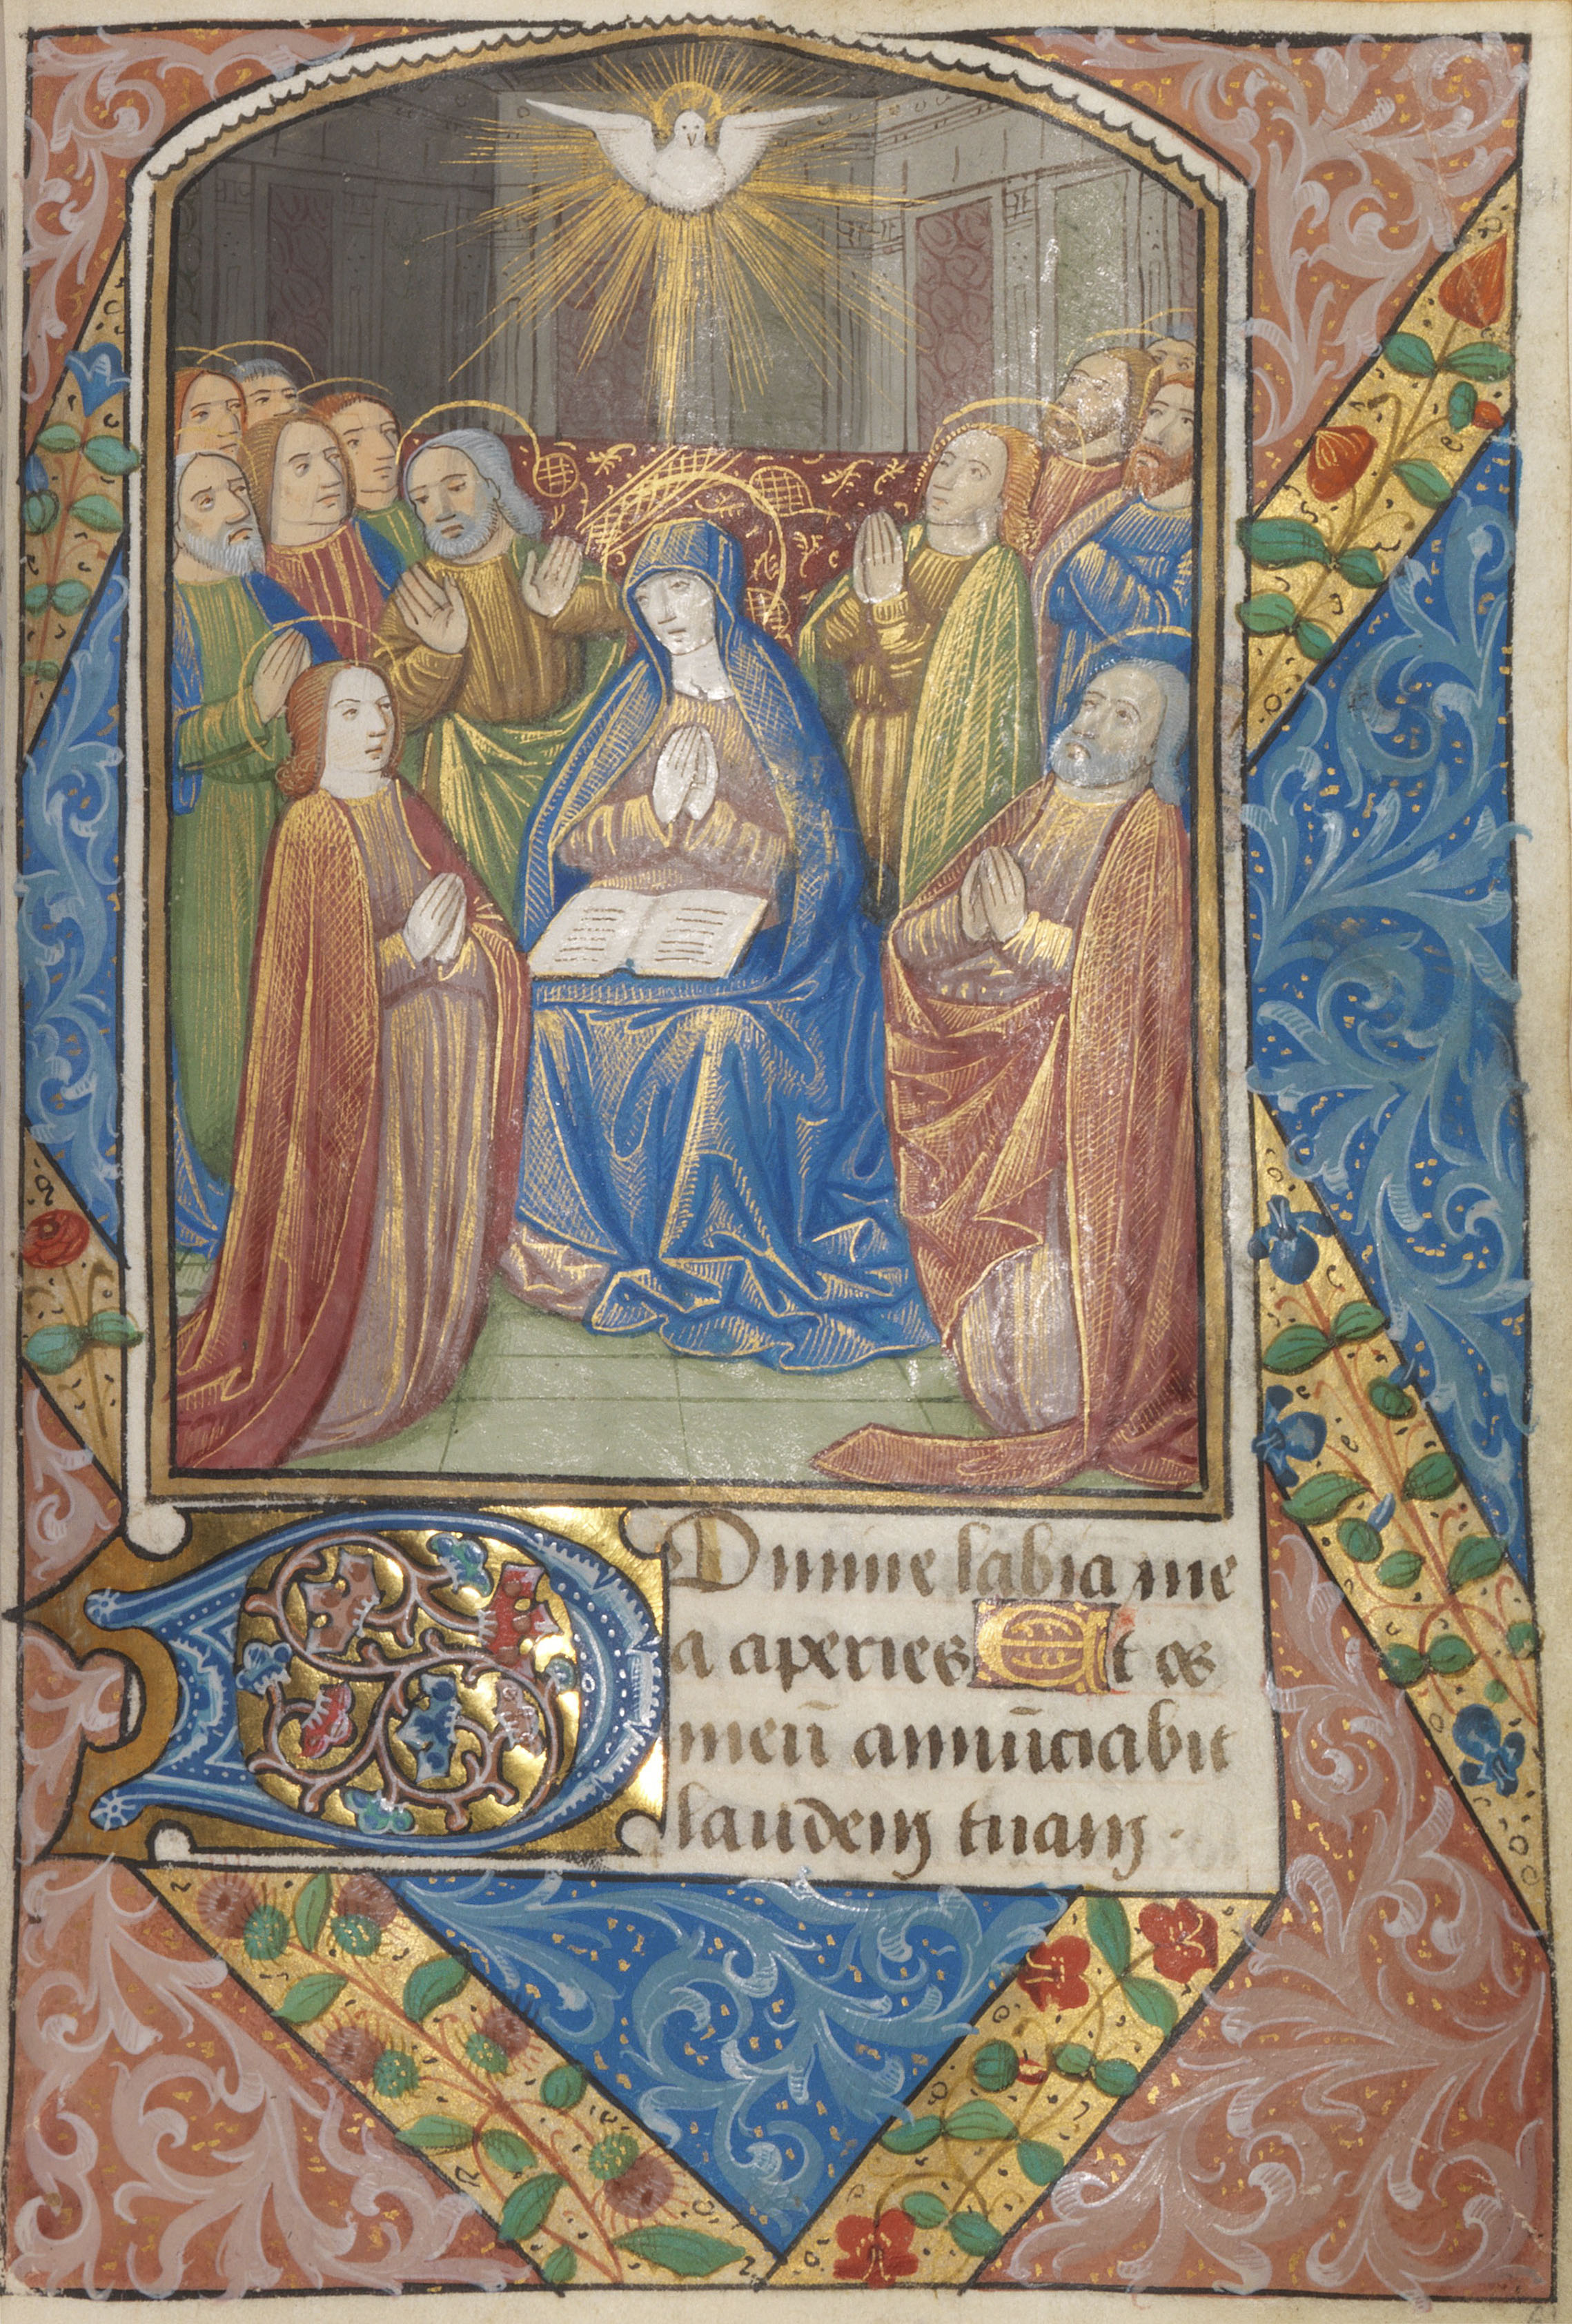 Domine labia me
a aperies Et os
meū annūciabit
laudem tuam.